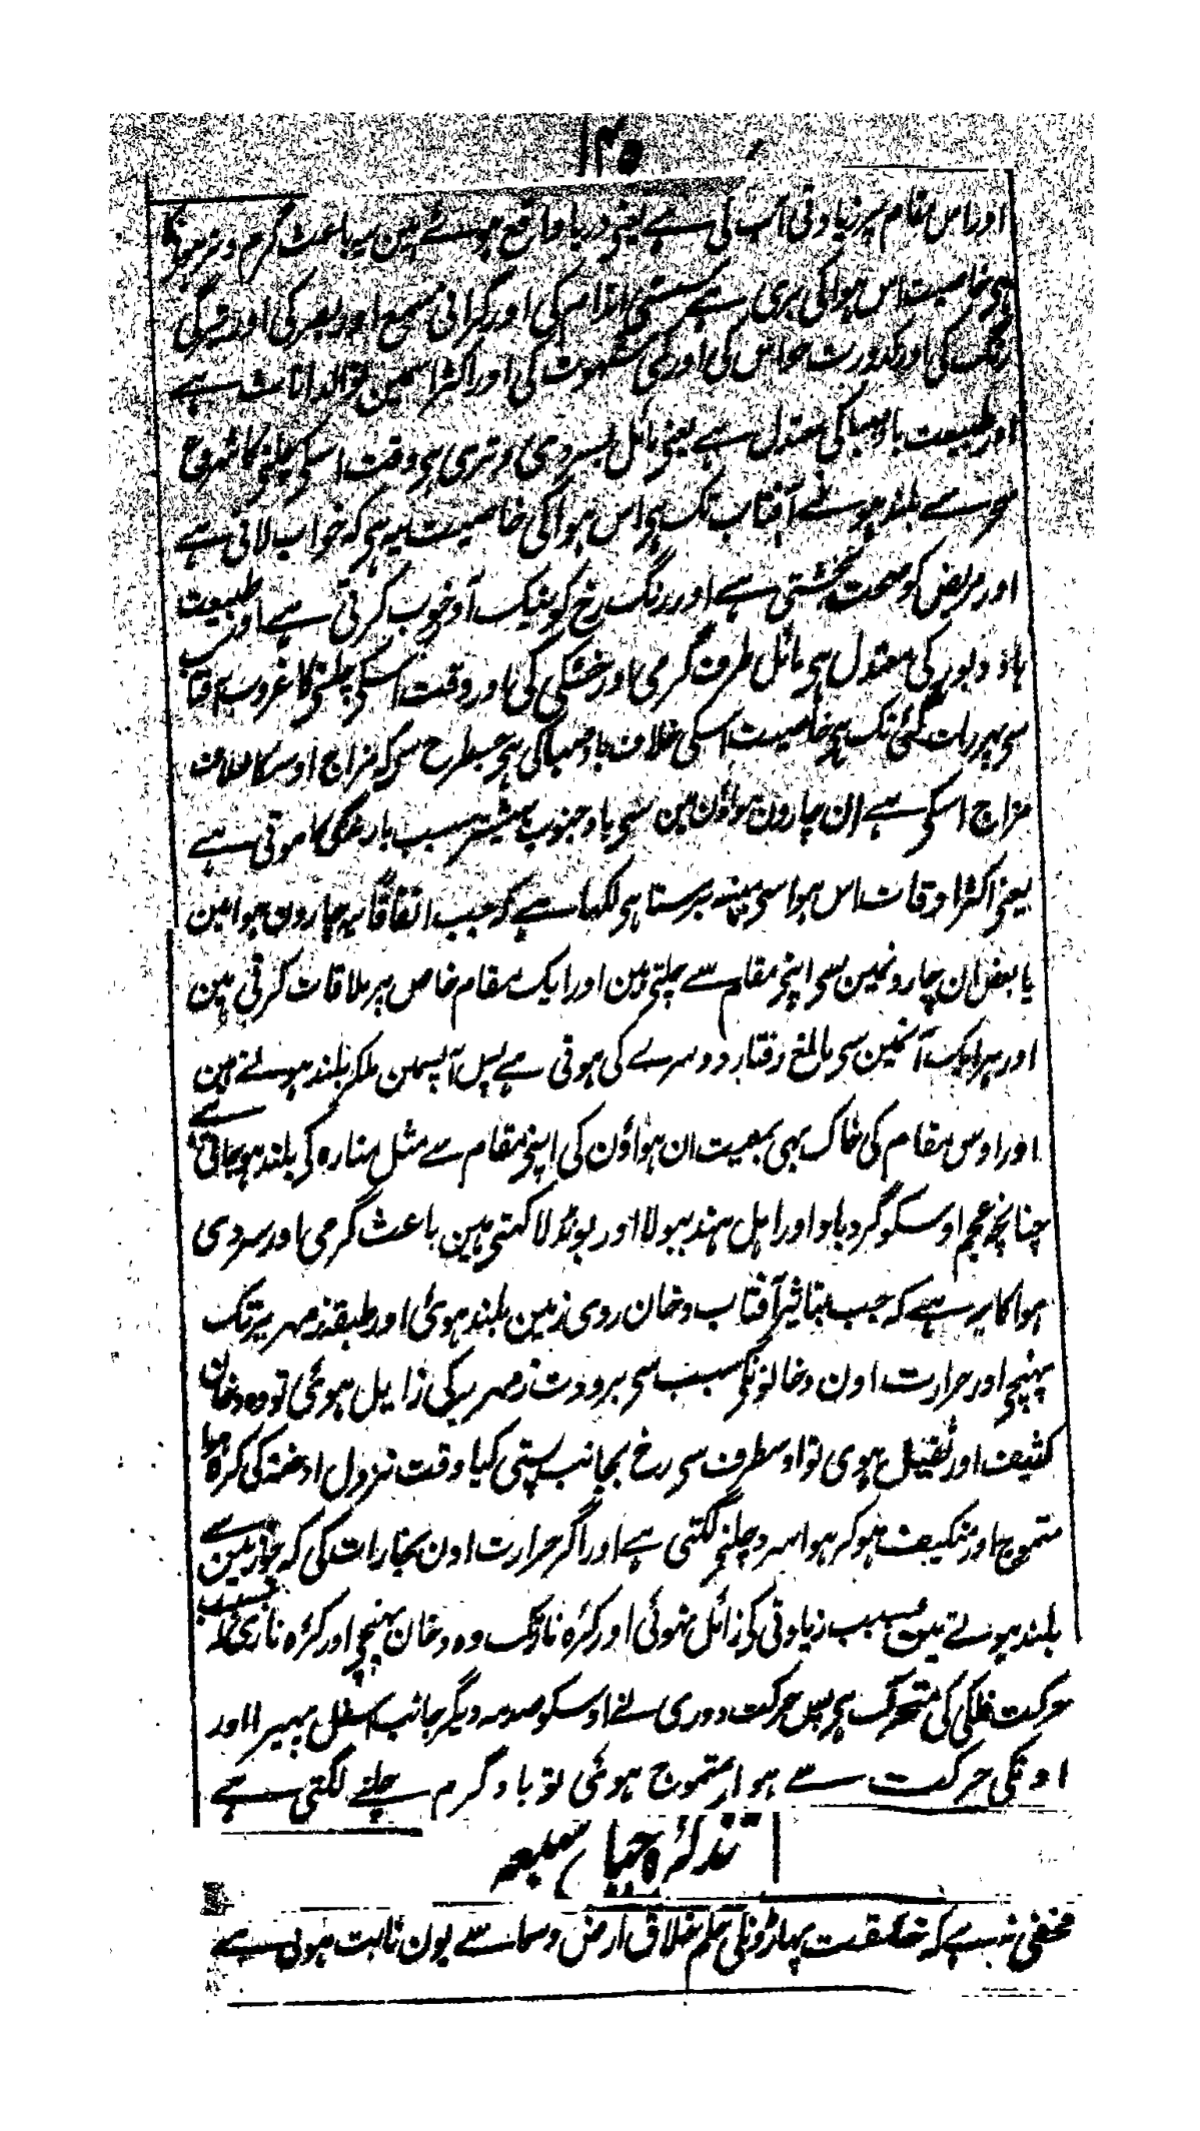 ۱۲۵
اور اس مقام پر زیادتی آب کی ہے یعنی دریا واقع ہوئے ہین یہ باعث گرم و تر ہونیکا
ہی خاصیت اس ہوا کی بری ہے سستی اندام کی اور گرانی سمع اور بصر کی اور تیرگی
رنگ کی اور کدورت حواس کی اور کمی شہوت کی اور اکثر اسمین تولد اناث ہے
اور طبیعت باد صبا کی معتدل ہے یعنی مائل بسردی و تری ہی وقت اسکی چلنی کا شروع
سحر سے بلند ہونے آفتاب تک ہی اس ہوا کی خاصیت یہ ہی کہ خواب لاتی ہے
اور مریض کو صحت بخشتی ہے اور رنگ رخ کو نیک اور خوب کرتی ہے اور طبیعت
باد دبور کی معتدل ہی مائل طرف گرمی اور خشکی کی اور وقت اسکی چلنی کا غروب آفتاب
سی پہر رات گئی تک ہی خاصیت اسکی خلاف باد صبا کی ہی جسطرح سی کہ مزاج اوسکا خلاف
مزاج اسکی ہے ان چارون ہواؤن مین سی باد جنوب بیشتر سبب بارندگی کا ہوتی ہے
یعنی اکثر اوقات اس ہوا سی مینہ برستا ہی لکھا ہے کہ جب اتفاقاً یہ چارون ہوا مین
یا بعض ان چارونمین سی اپنی مقام سے چلتی ہین اور ایک مقام خاص پر ملاقات کرتی ہین
اور ہر ایک آنمین سی مانع رفتار دوسرے کی ہوتی ہے پس آپسمین ملکر بلند ہوتے ہین
اور اوس مقام کی خاک بھی بمعیت ان ہواؤن کی اپنی مقام سے مثل منارہ کی بلند ہو جاتی ہے
چنانچہ عجم اوسکو گردباد اور اہل ہند بہولا اور بونڈلا کہتی ہین باعث گرمی اور سردی
ہوا کا یہ ہے کہ جب بتاثیر آفتاب دخان روی زمین بلند ہوئی اور طبقہ زمہریر تک
پہنچی اور حرارت اون دخانونکی سبب سی برودت زمہریر کی زایل ہوئی تو وہ دخان
کثیف اور ثقیل ہوی تو اوسطرف سی رخ بجانب پستی کیا وقت نزول ادخنہ کی کرہ ہوا
متموج اور متکیف ہو کر ہوا سرد چلنی لگتی ہے اور اگر حرارت اون بخارات کی کہ جو زمین سے
بلند ہوتے ہین بسبب زیادتی کی زائل نہوئی اور کرّہ نار تک وہ دخان پہنچی اور کرّہ ناری کہ بسبب
حرکت فلکی کی متحرک ہی پس حرکت دوری نے اوسکو صدمہ دیگر جانب اسفل پہیرا اور
اونکی حرکت سے ہوا متموج ہوئی تو باد گرم چلنے لگتی ہے
تذکرۂ جبال سبعہ
مخفی نہ رہے کہ خلقت پہاڑونکی بحکم خلاق ارض و سما سے یون ثابت ہوئی ہے